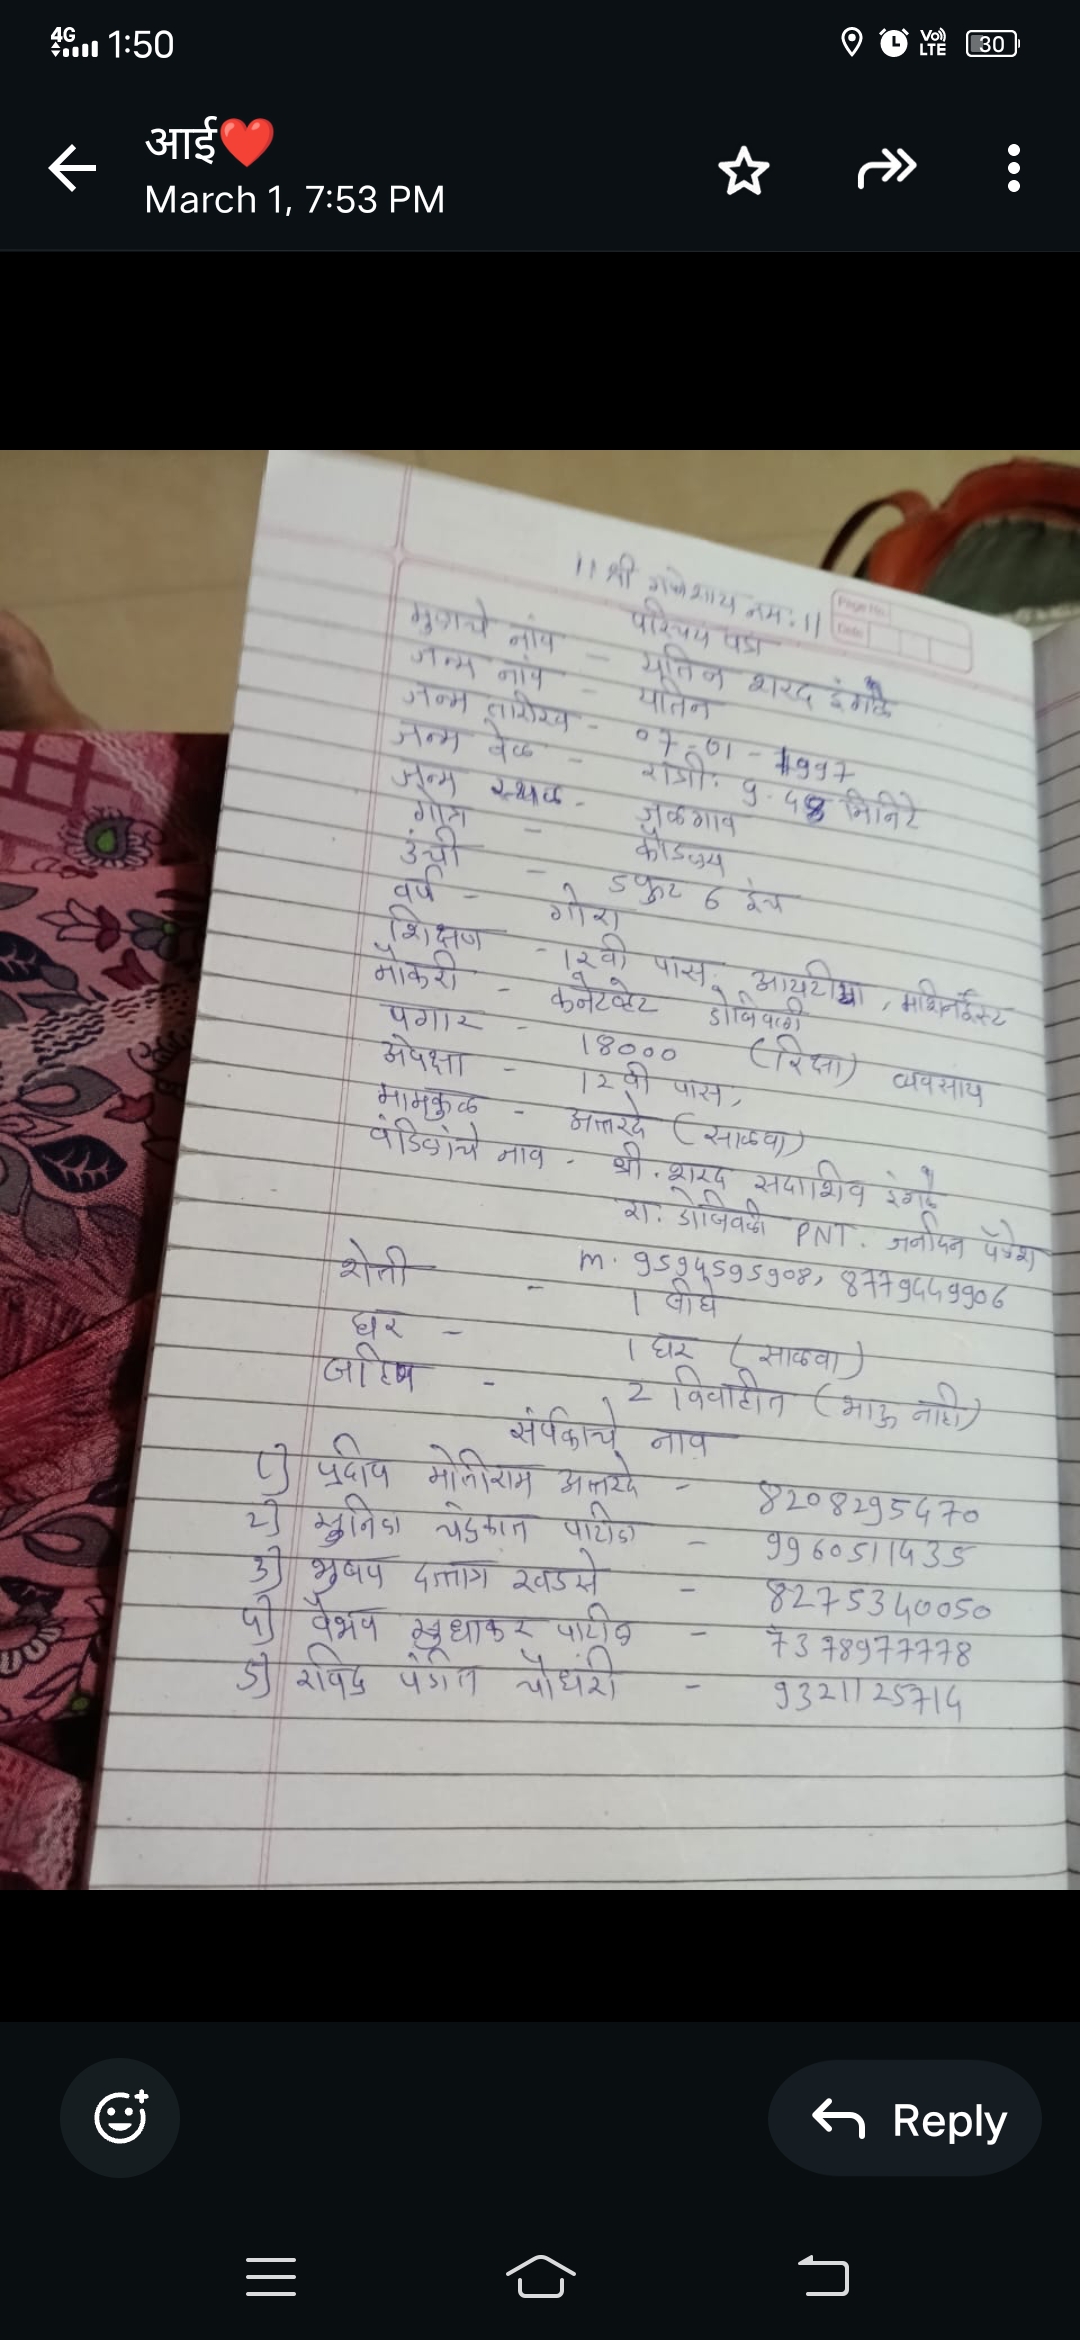 4G 1:50 Vo) LTE 30
आई❤️
March 1, 7:53 PM
।। श्री गणेशाय नमः ।।
Page No.
Date
परिचय पत्र
मुलाचे नांव - यतिन शरद इंगळे
जन्म नांव - यतिन
जन्म तारीख - ०7-01-1997
जन्म वेळ - रात्री: 9.48 मिनिटे
जन्म स्थळ - जळगाव
गोत्र - कौडण्य
उंची - 5 फुट 6 इंच
वर्ण - गोरा
शिक्षण - 12वी पास, आयटीआ, मशिनईस्ट
नौकरी - डोंबिवली
पगार - 18000 (रिक्षा) व्यवसाय
अपेक्षा - 12वी पास,
मामकुळ - अत्तरदे (साळवा)
वडिलांचे नाव - श्री. शरद सदाशिव इंगळे
रा. डोंबिवली PNT.
m. 9594595908, 8779449906
शेती - 1 बीघे
घर - 1 घर (साळवा)
बहिण - 2 विवाहीत (भाऊ नाही)
संर्पकाचे नाव
1) प्रदीप मोतीराम अत्तरदे - 8208295470
2) चंद्रकांत पाटील - 9960511435
3) भुषण खडसे - 8275340050
4) वैभव सुधाकर पाटील - 7378977778
5) रविंद्र पंडीत चौधरी - 9321125714
Reply